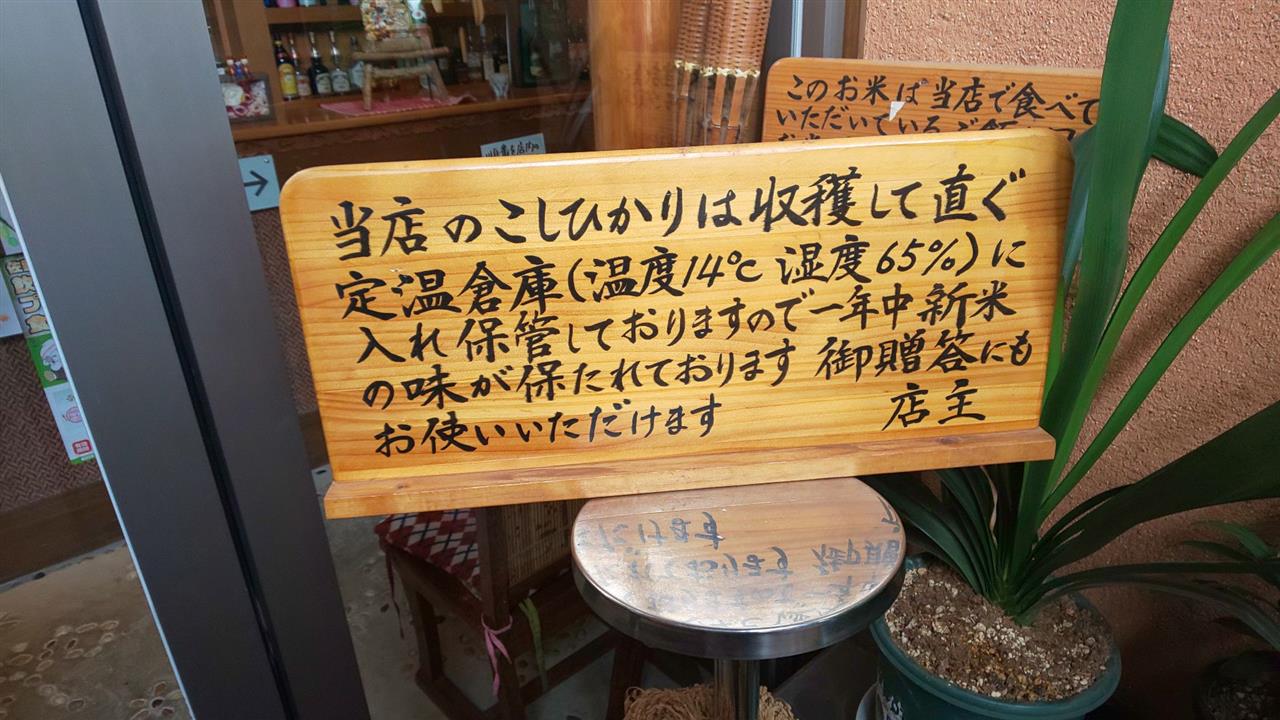 このお米は当店で食べて
いただいている
当店のこしひかりは収穫して直ぐ
定温倉庫(温度14℃ 湿度65%)に
入れ保管しておりますので一年中新米
の味が保たれております 御贈答にも
お使いいただけます 店主